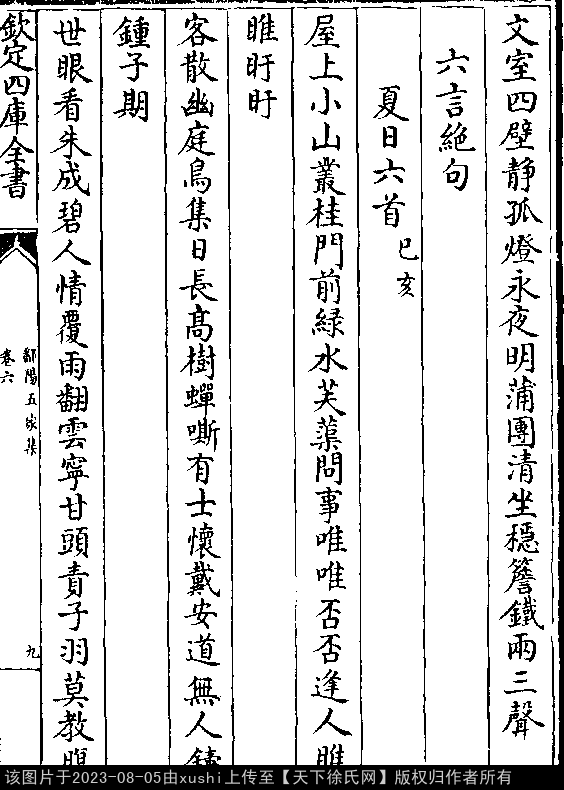 文室四壁靜孤燈永夜明蒲團清坐穩簷鐵兩三聲
六言絕句
夏日六首 己亥
屋上小山叢桂門前緑水芙蕖問事唯唯否否逢人睢
睢盱盱
客散幽庭鳥集日長髙樹蟬嘶有士懷戴安道無人鑄
鍾子期
世眼看朱成碧人情覆雨翻雲寧甘頭責子羽莫教腹
欽定四庫全書
鄱陽五家集
卷六
九
该图片于2023-08-05由xushi上传至【天下徐氏网】版权归作者所有